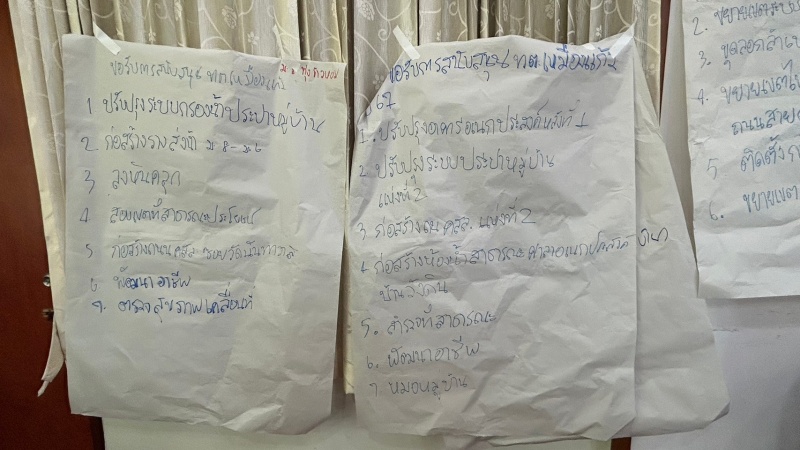 ขอรับการสนับสนุน จาก เหมืองแร่
1 ปรับปรุงระบบกรองน้ำประปาหมู่บ้าน
2 ก่อสร้างรางส่งน้ำ ม 8 - ม 6
3 ลงหินคลุก
4 สอบเขตที่สาธารณะประโยชน์
5 ก่อสร้างถนน คสล.
6 พัฒนาอาชีพ
7. ตรวจสุขภาพเคลื่อนที่
ขอรับการสนับสนุน จาก เหมืองแร่
1. ปรับปรุงอาคารอเนกประสงค์ หลังที่ 1
2. ปรับปรุงระบบประปาหมู่บ้าน
แห่งที่ 2
3 ก่อสร้างถนน คสล. แห่งที่ 2
4 ก่อสร้างห้องน้ำสาธารณะ ศาลาอเนกประสงค์
5. สำรวจที่สาธารณะ
6. พัฒนาอาชีพ
7. หมอหมู่บ้าน
2. ขยายเขต
3. ขุดลอกลำ
4. ขยายเขต
ถนนสาย
5 ติดตั้ง
6. ขยายเขต